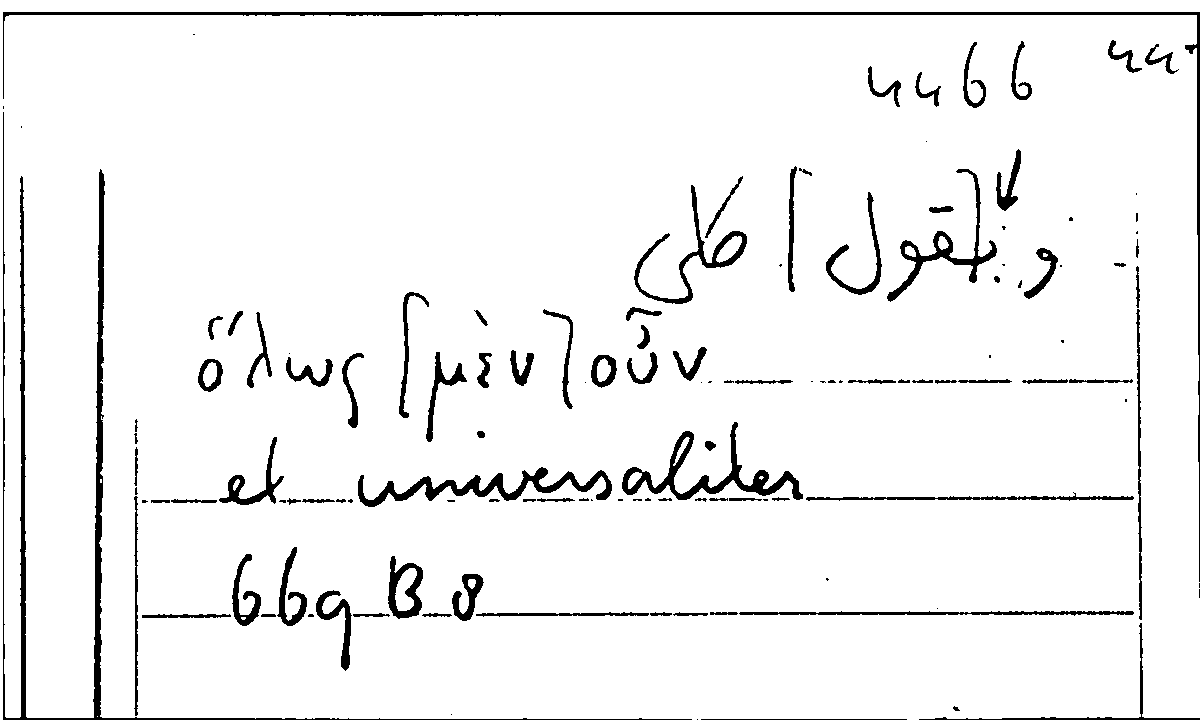 4466 44
و [بقول] كلى
ὅλως [μὲν] οὖν
et universaliter
669 B 8